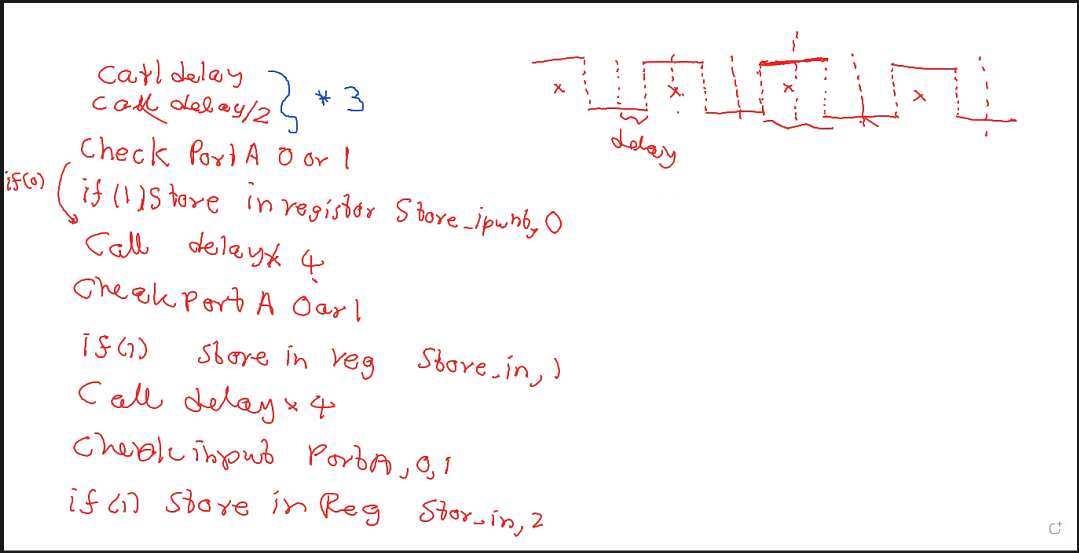 Call delay
Call delay/2 } * 3
Check Port A 0 or 1
if(0)
if (1) Store in registor Store_ipunt, 0
Call delay x 4
Check port A 0 or 1
if (1) store in reg Store_in, 1
Call delay x 4
Check input PortA, 0, 1
if (1) store in Reg Stor_in, 2
1
x x x x x
delay